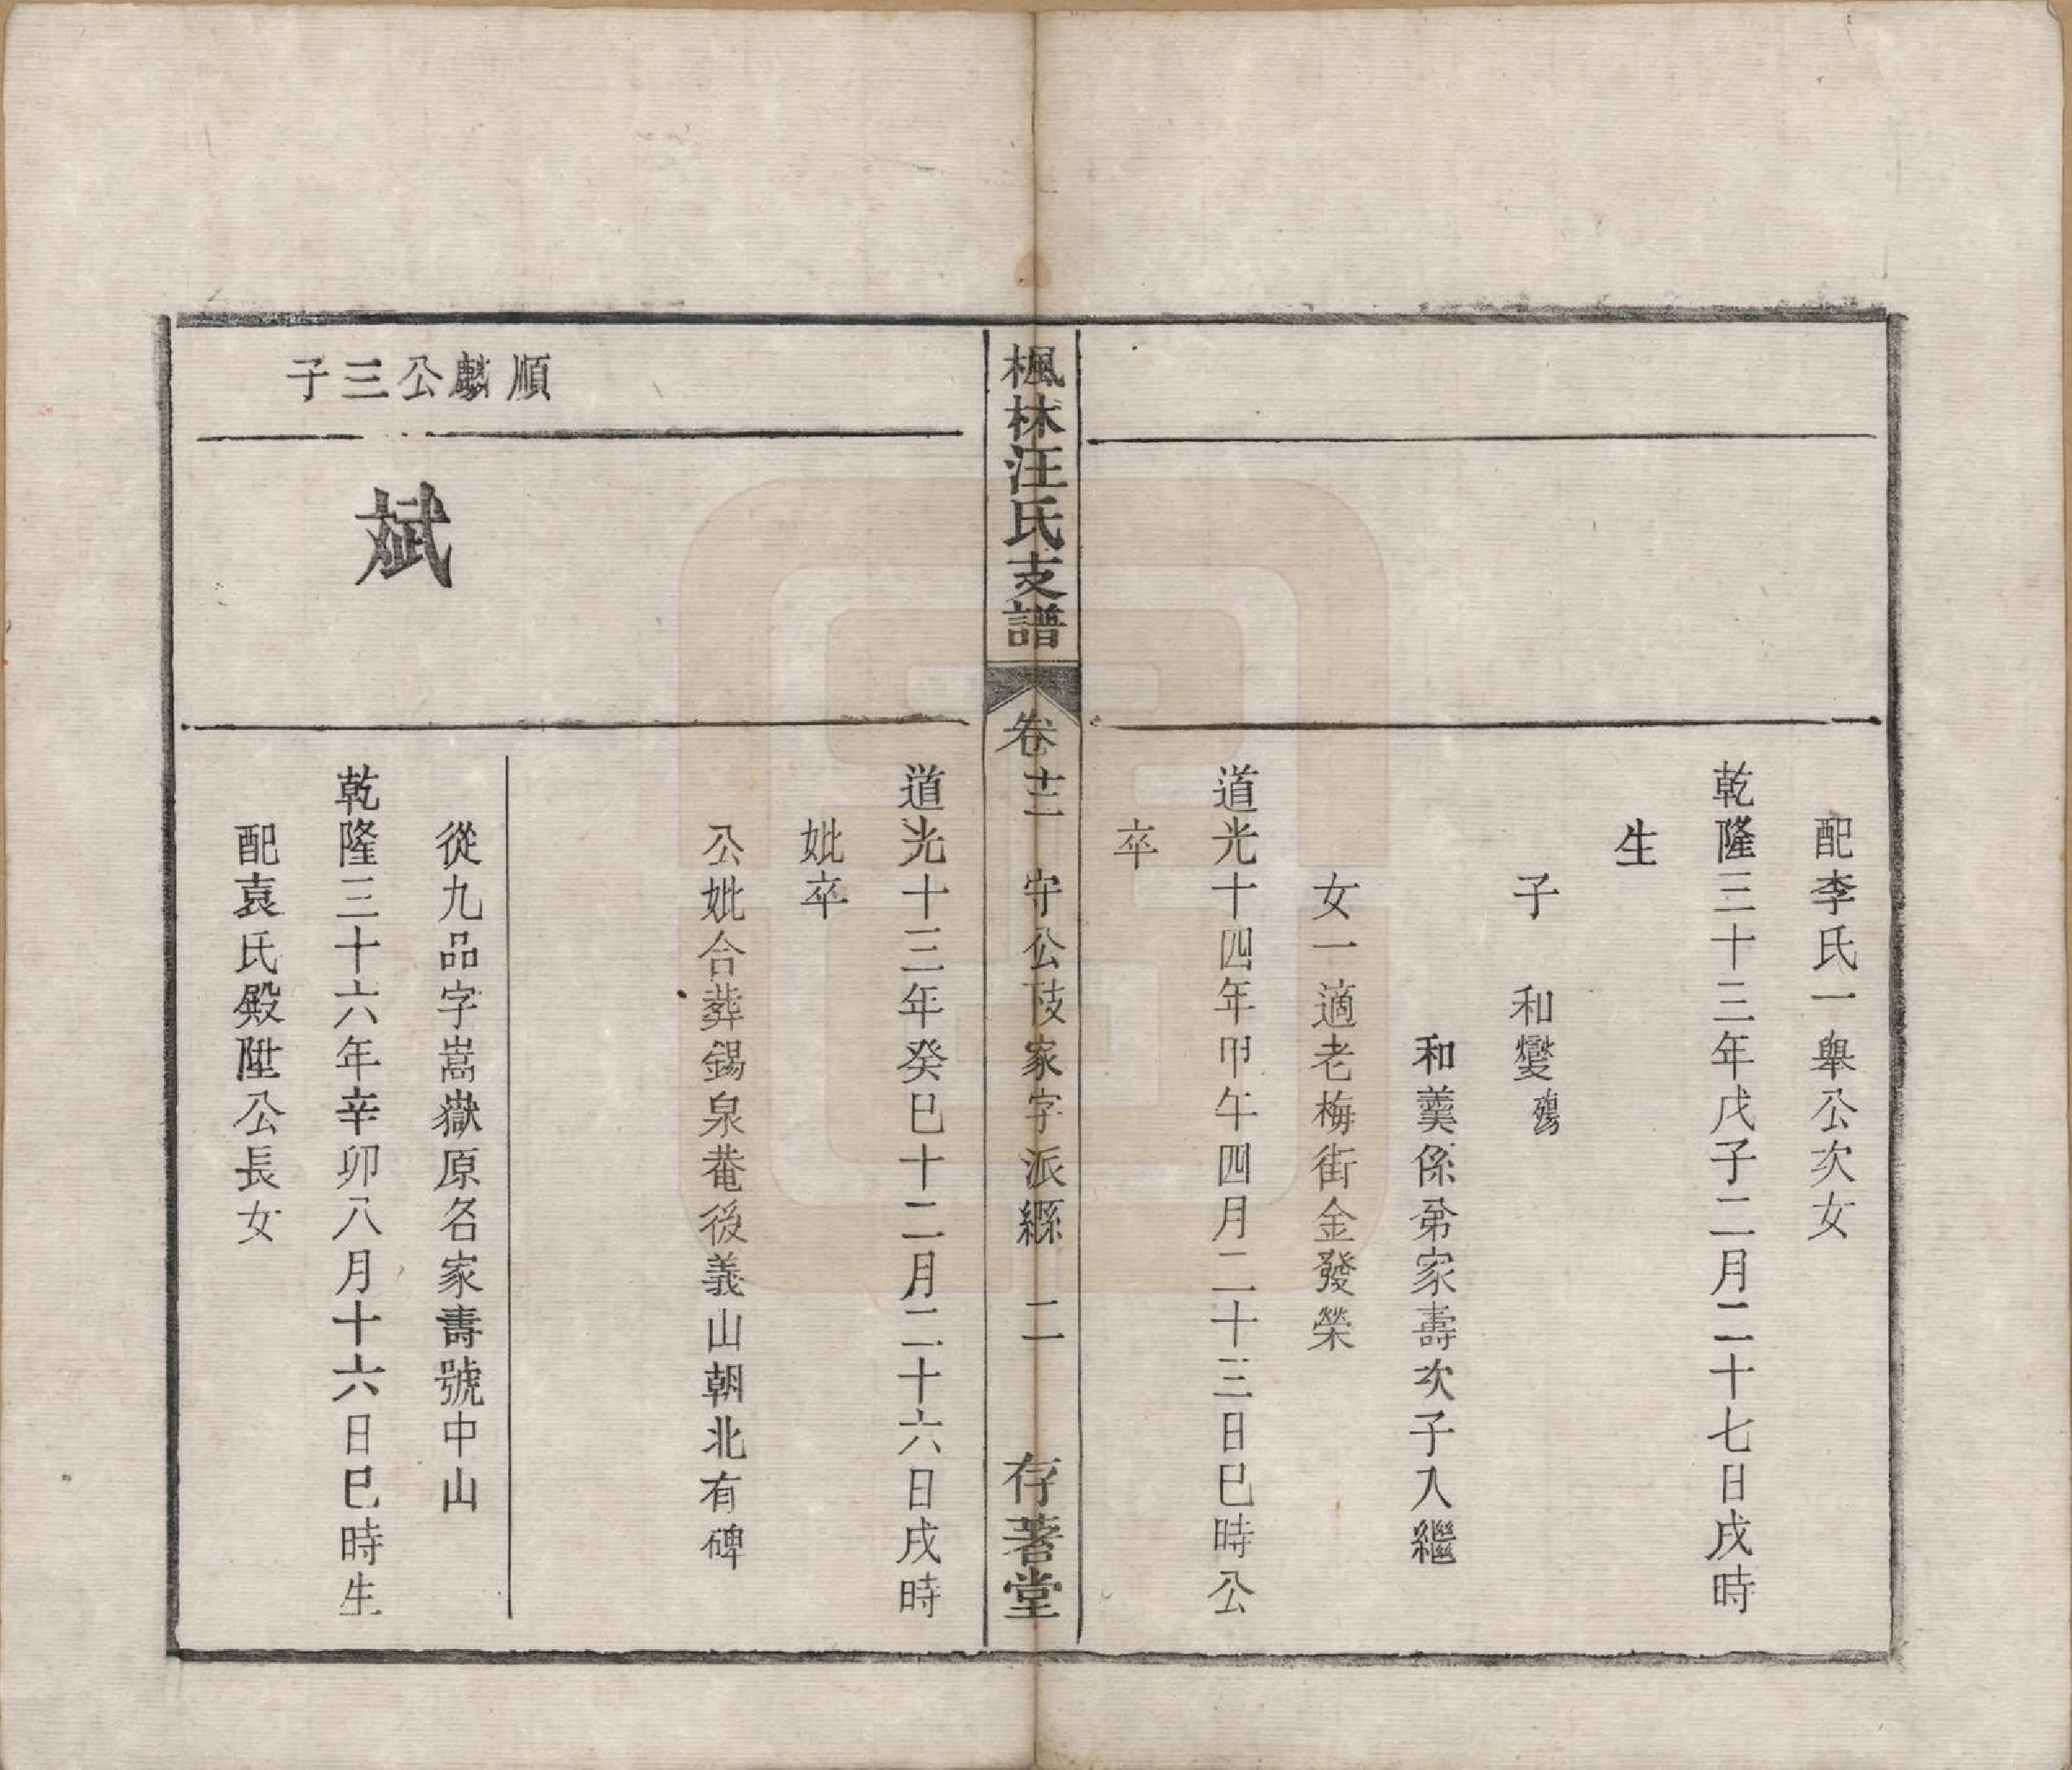 配李氏一舉公次女
乾隆三十三年戊子二月二十七日戌時
生
子　和燮殤
和羹係弟家壽次子入繼
女一適老梅街金發榮
道光十四年甲午四月二十三日巳時公
卒
楓林汪氏支譜
卷十二　守公支家字派縣　二
存著堂
道光十三年癸巳十二月二十六日戌時
妣卒
公妣合葬錫泉菴後義山朝北有碑
順麟公三子
斌
從九品字嵩嶽原名家壽號中山
乾隆三十六年辛卯八月十六日巳時生
配袁氏殿陞公長女